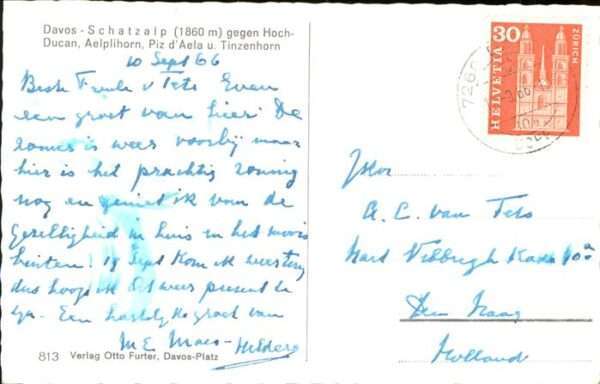 Davos - Schatzalp (1860 m) gegen Hoch-
Ducan, Aelplihorn, Piz d'Aela u. Tinzenhorn
10 Sept 66
Beste Freule v Tets Even
een groet van hier! De
zomer is weer voorbij maar
hier is het prachtig zonnig
nog en geniet ik van de
gezelligheid in huis en het moois
buiten! 18 Sept kom ik weer terug
dus hoop ik weer present te
zijn. Een hartelijke groet van
M E Maes-
813 Verlag Otto Furter, Davos-Platz
30
HELVETIA
ZÜRICH
A. C. van Tets
Kade 10a
Den Haag
Holland